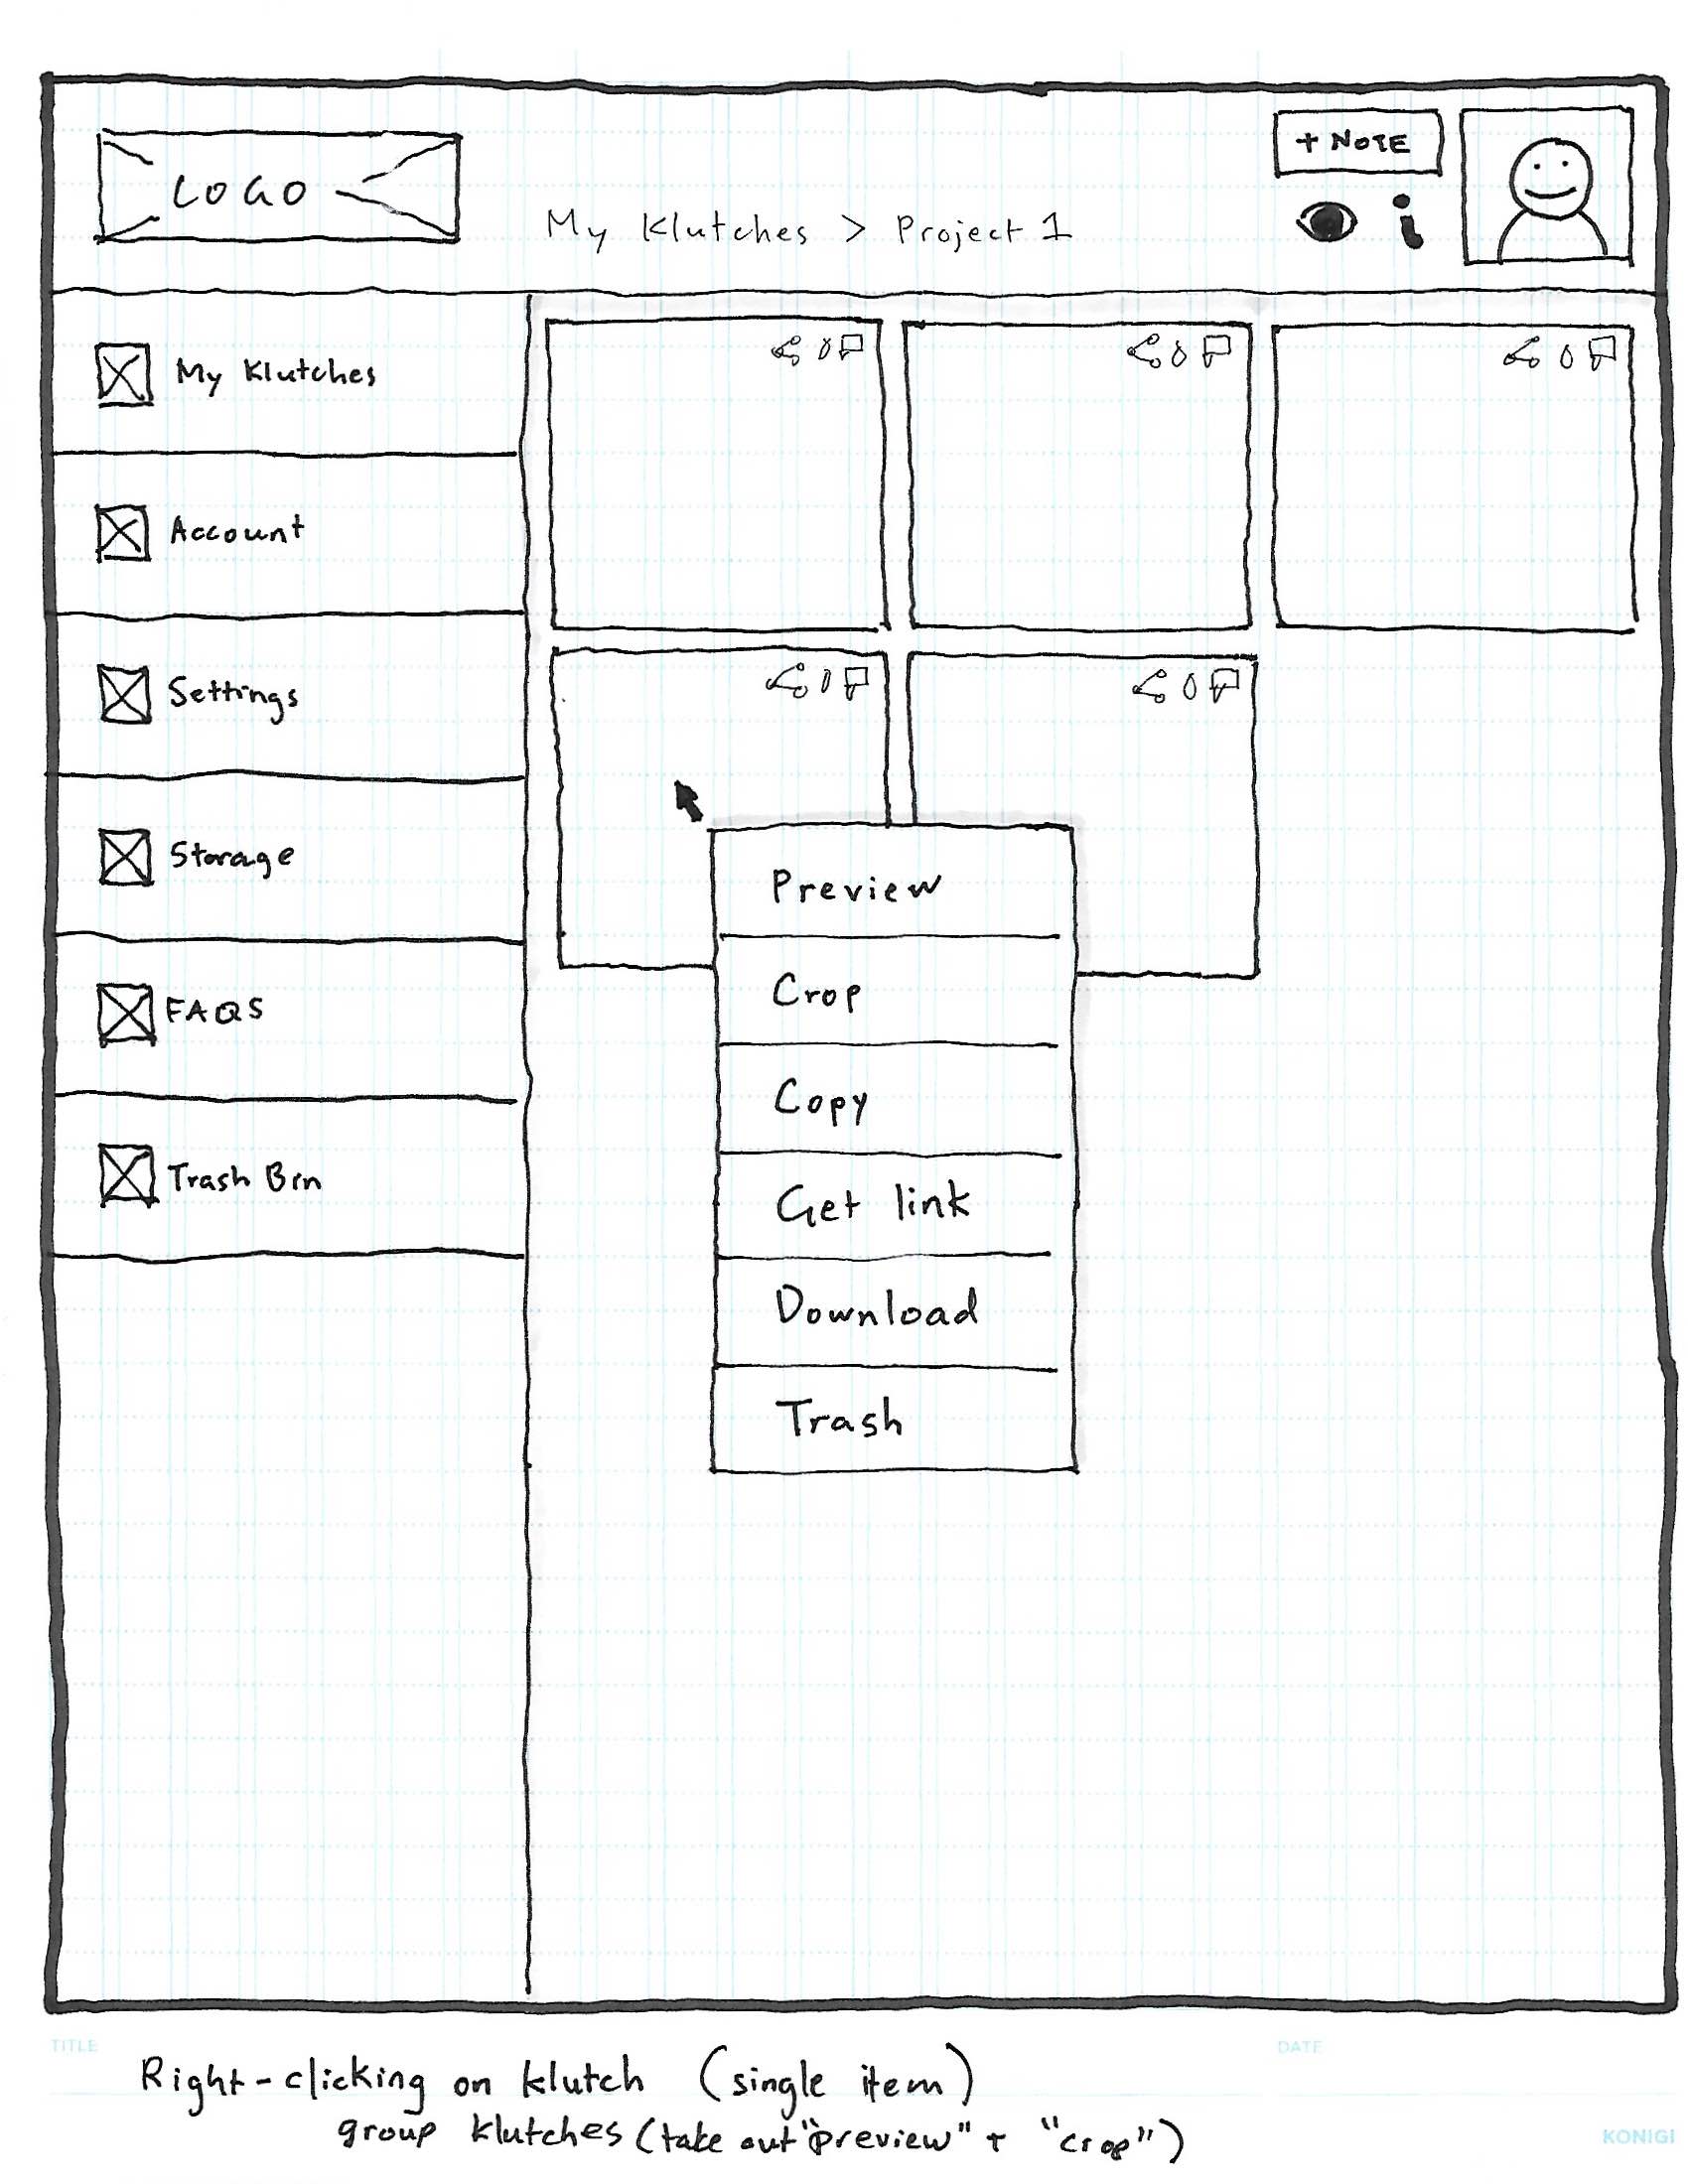 LOGO
+ NOTE
My Klutches > Project 1
My Klutches
Account
Settings
Storage
FAQS
Trash Bin
Preview
Crop
Copy
Get link
Download
Trash
TITLE
DATE
Right-clicking on klutch (single item)
group klutches (take out "preview" + "crop")
KONIGI